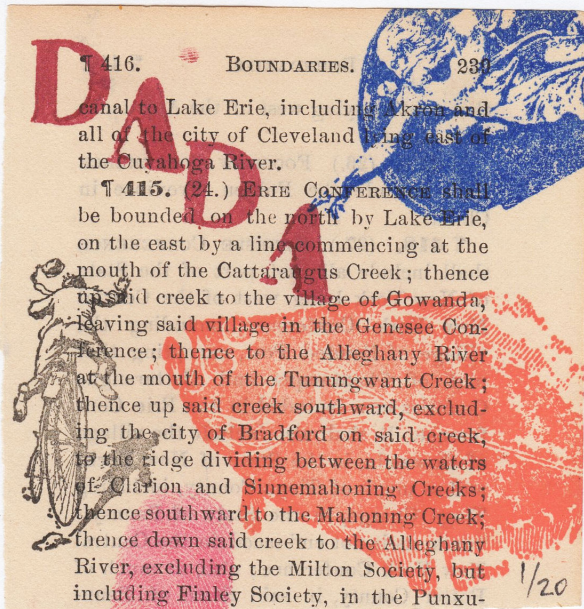 DADA
¶ 416. BOUNDARIES. 239
canal to Lake Erie, including Akron and
all of the city of Cleveland lying east of
the Cuyahoga River.
¶ 415. (24.) ERIE CONFERENCE shall
be bounded on the north by Lake Erie,
on the east by a line commencing at the
mouth of the Cattaraugus Creek; thence
up said creek to the village of Gowanda,
leaving said village in the Genesee Con-
ference; thence to the Alleghany River
at the mouth of the Tunungwant Creek;
thence up said creek southward, exclud-
ing the city of Bradford on said creek,
to the ridge dividing between the waters
of Clarion and Sinnemahoning Creeks;
thence southward to the Mahoning Creek;
thence down said creek to the Alleghany
River, excluding the Milton Society, but
including Finley Society, in the Punxu-
1/20